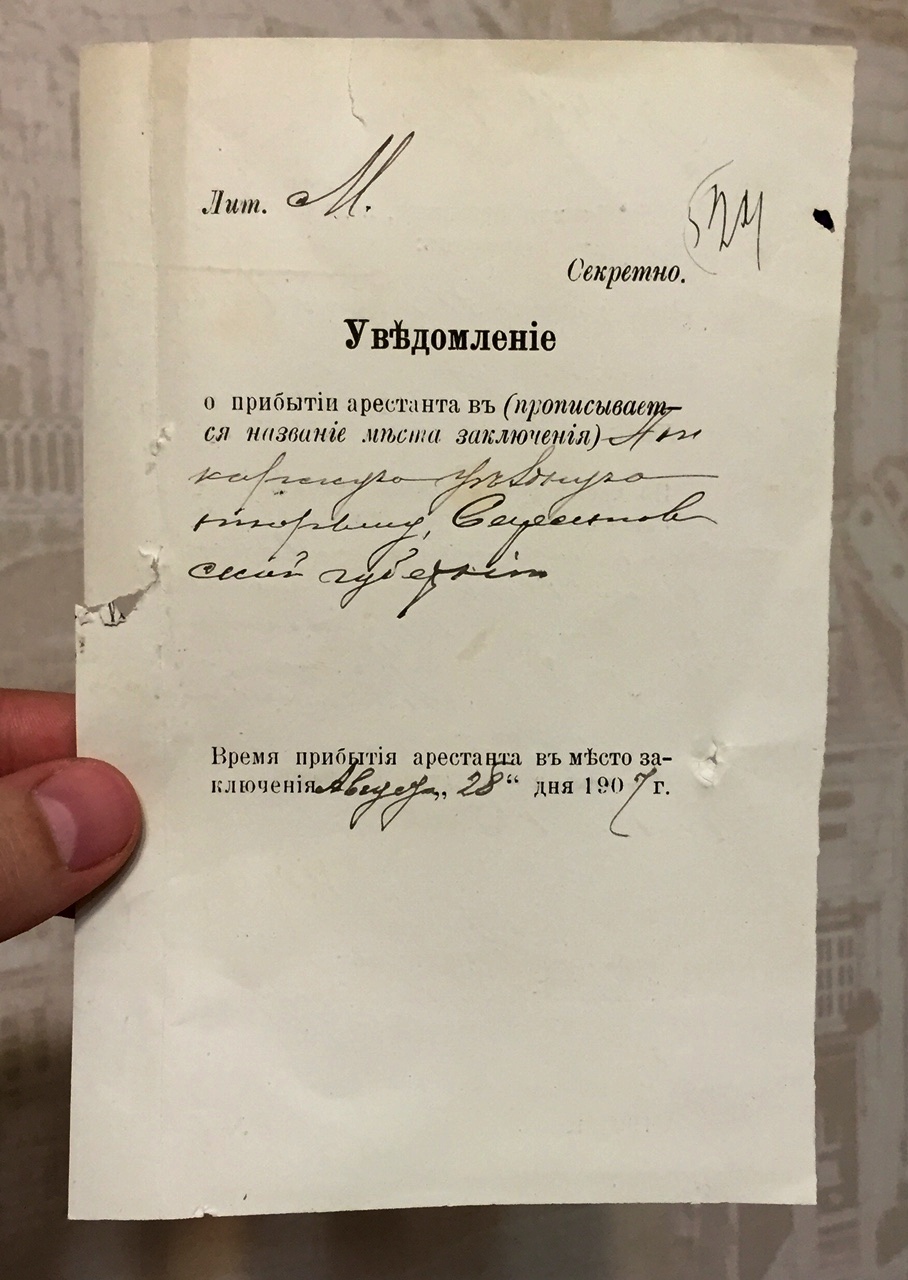 Лит. М.
524
Секретно.
Увѣдомленіе
о прибытіи арестанта въ (прописывает-
ся названіе мѣста заключенія) Ат
карскую уѣздную
тюрьму, Саратов
ской губерніи
Время прибытія арестанта въ мѣсто за-
ключенія Августа „28“ дня 1907 г.